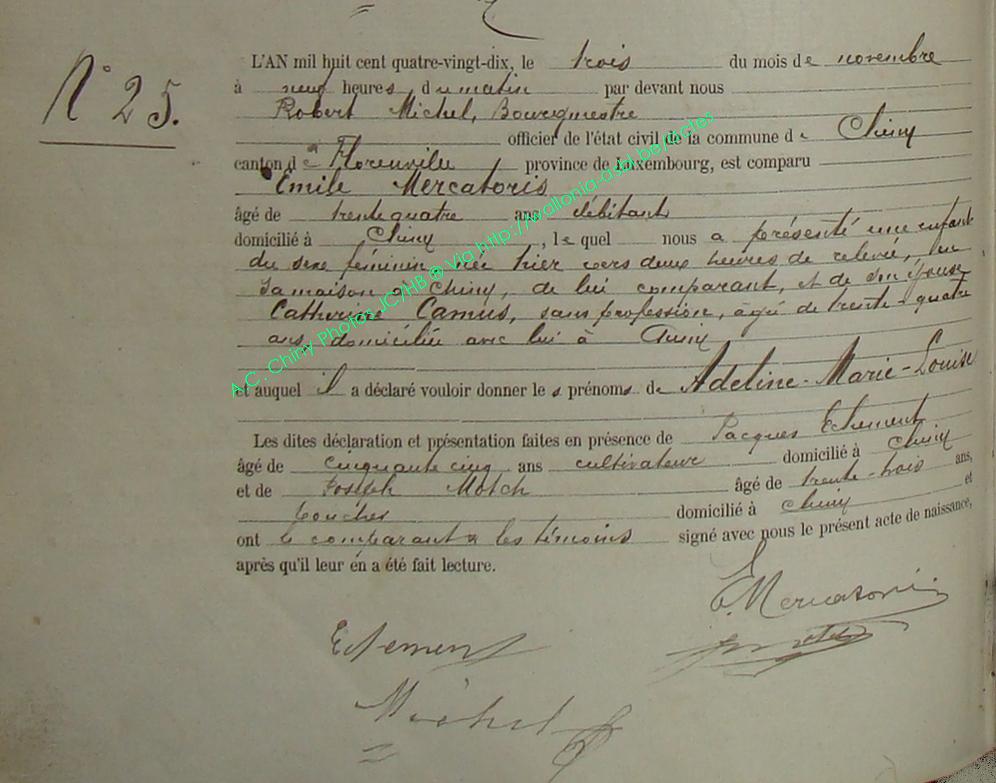 N° 25.
L'AN mil huit cent quatre-vingt-dix, le trois du mois de novembre
à neuf heures du matin par devant nous
Robert Michel, Bourgmestre
officier de l'état civil de la commune de Chiny
canton de Florenville province de Luxembourg, est comparu
Emile Mercatoris
âgé de trente quatre ans débitant
domicilié à Chiny, lequel nous a présenté une enfant
du sexe féminin née hier vers deux heures de relevée, en
sa maison à Chiny, de lui comparant, et de son épouse
Catherine Camus, sans profession, âgée de trente-quatre
ans, domiciliée avec lui à Chiny
et auquel il a déclaré vouloir donner les prénoms de Adeline-Marie-Louise
Les dites déclaration et présentation faites en présence de Jacques Eschement
âgé de cinquante cinq ans cultivateur domicilié à Chiny
et de Joseph Motch âgé de trente-trois ans,
boucher domicilié à Chiny et
ont le comparant & les témoins signé avec nous le présent acte de naissance,
après qu'il leur en a été fait lecture.
E. Mercatoris
Michel
A.C. Chiny Photos JC/HB ® Via http://wallonia-asbl.be/actes